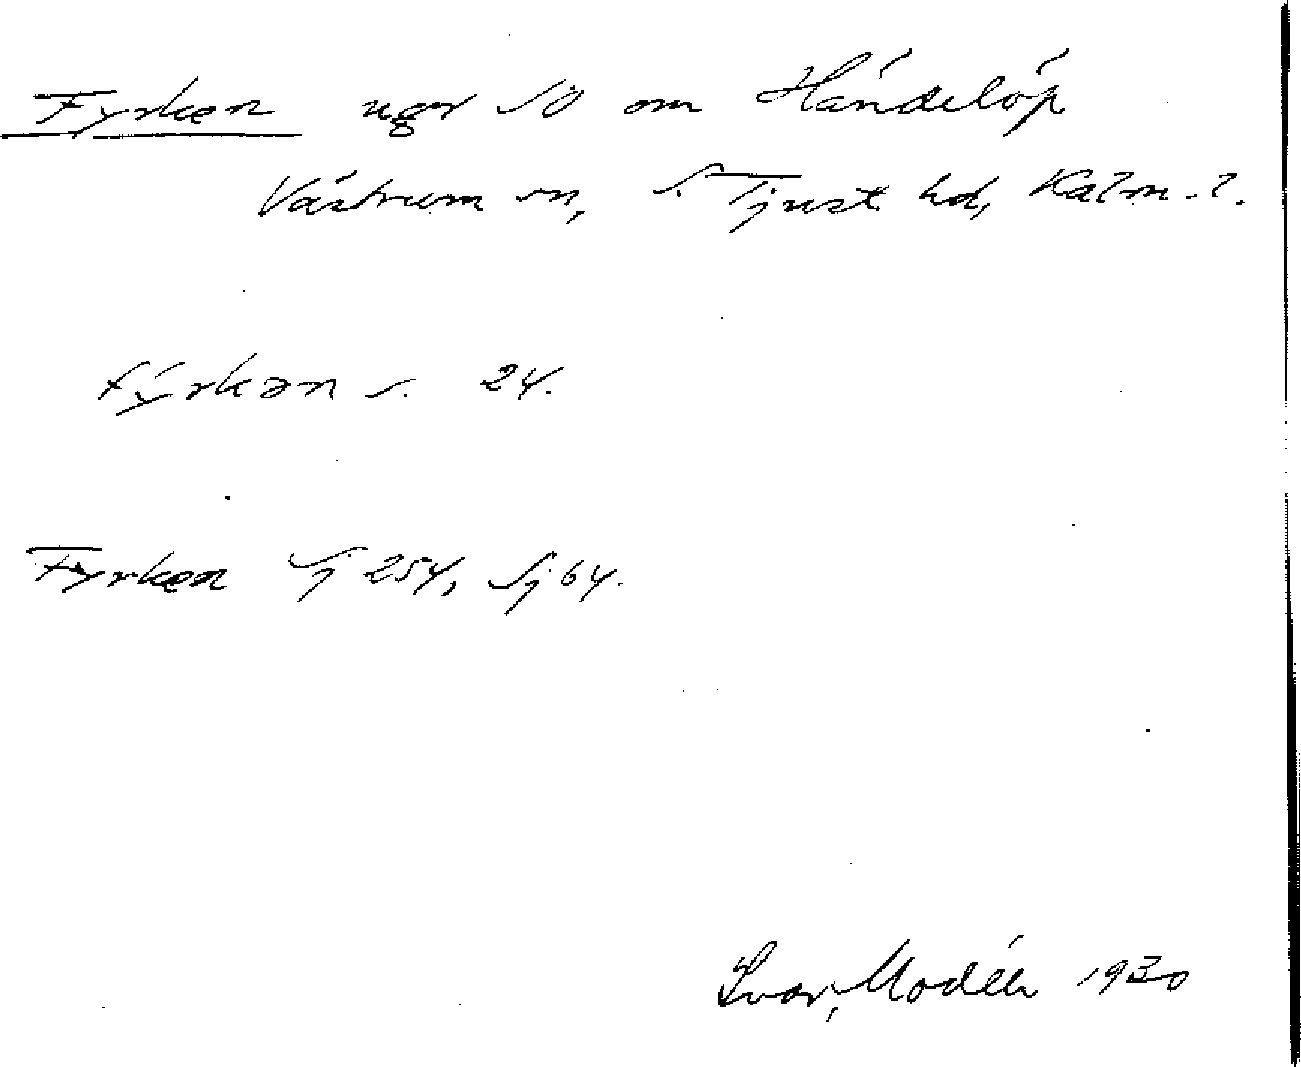 Fyrken ugr SO om Händelöp
Västrum sn, S. Tjust hd, Kalm. l.
fýrkən s. 24.
Fyrken Sj 254, Sj 64.
Ivar Modéer 1930